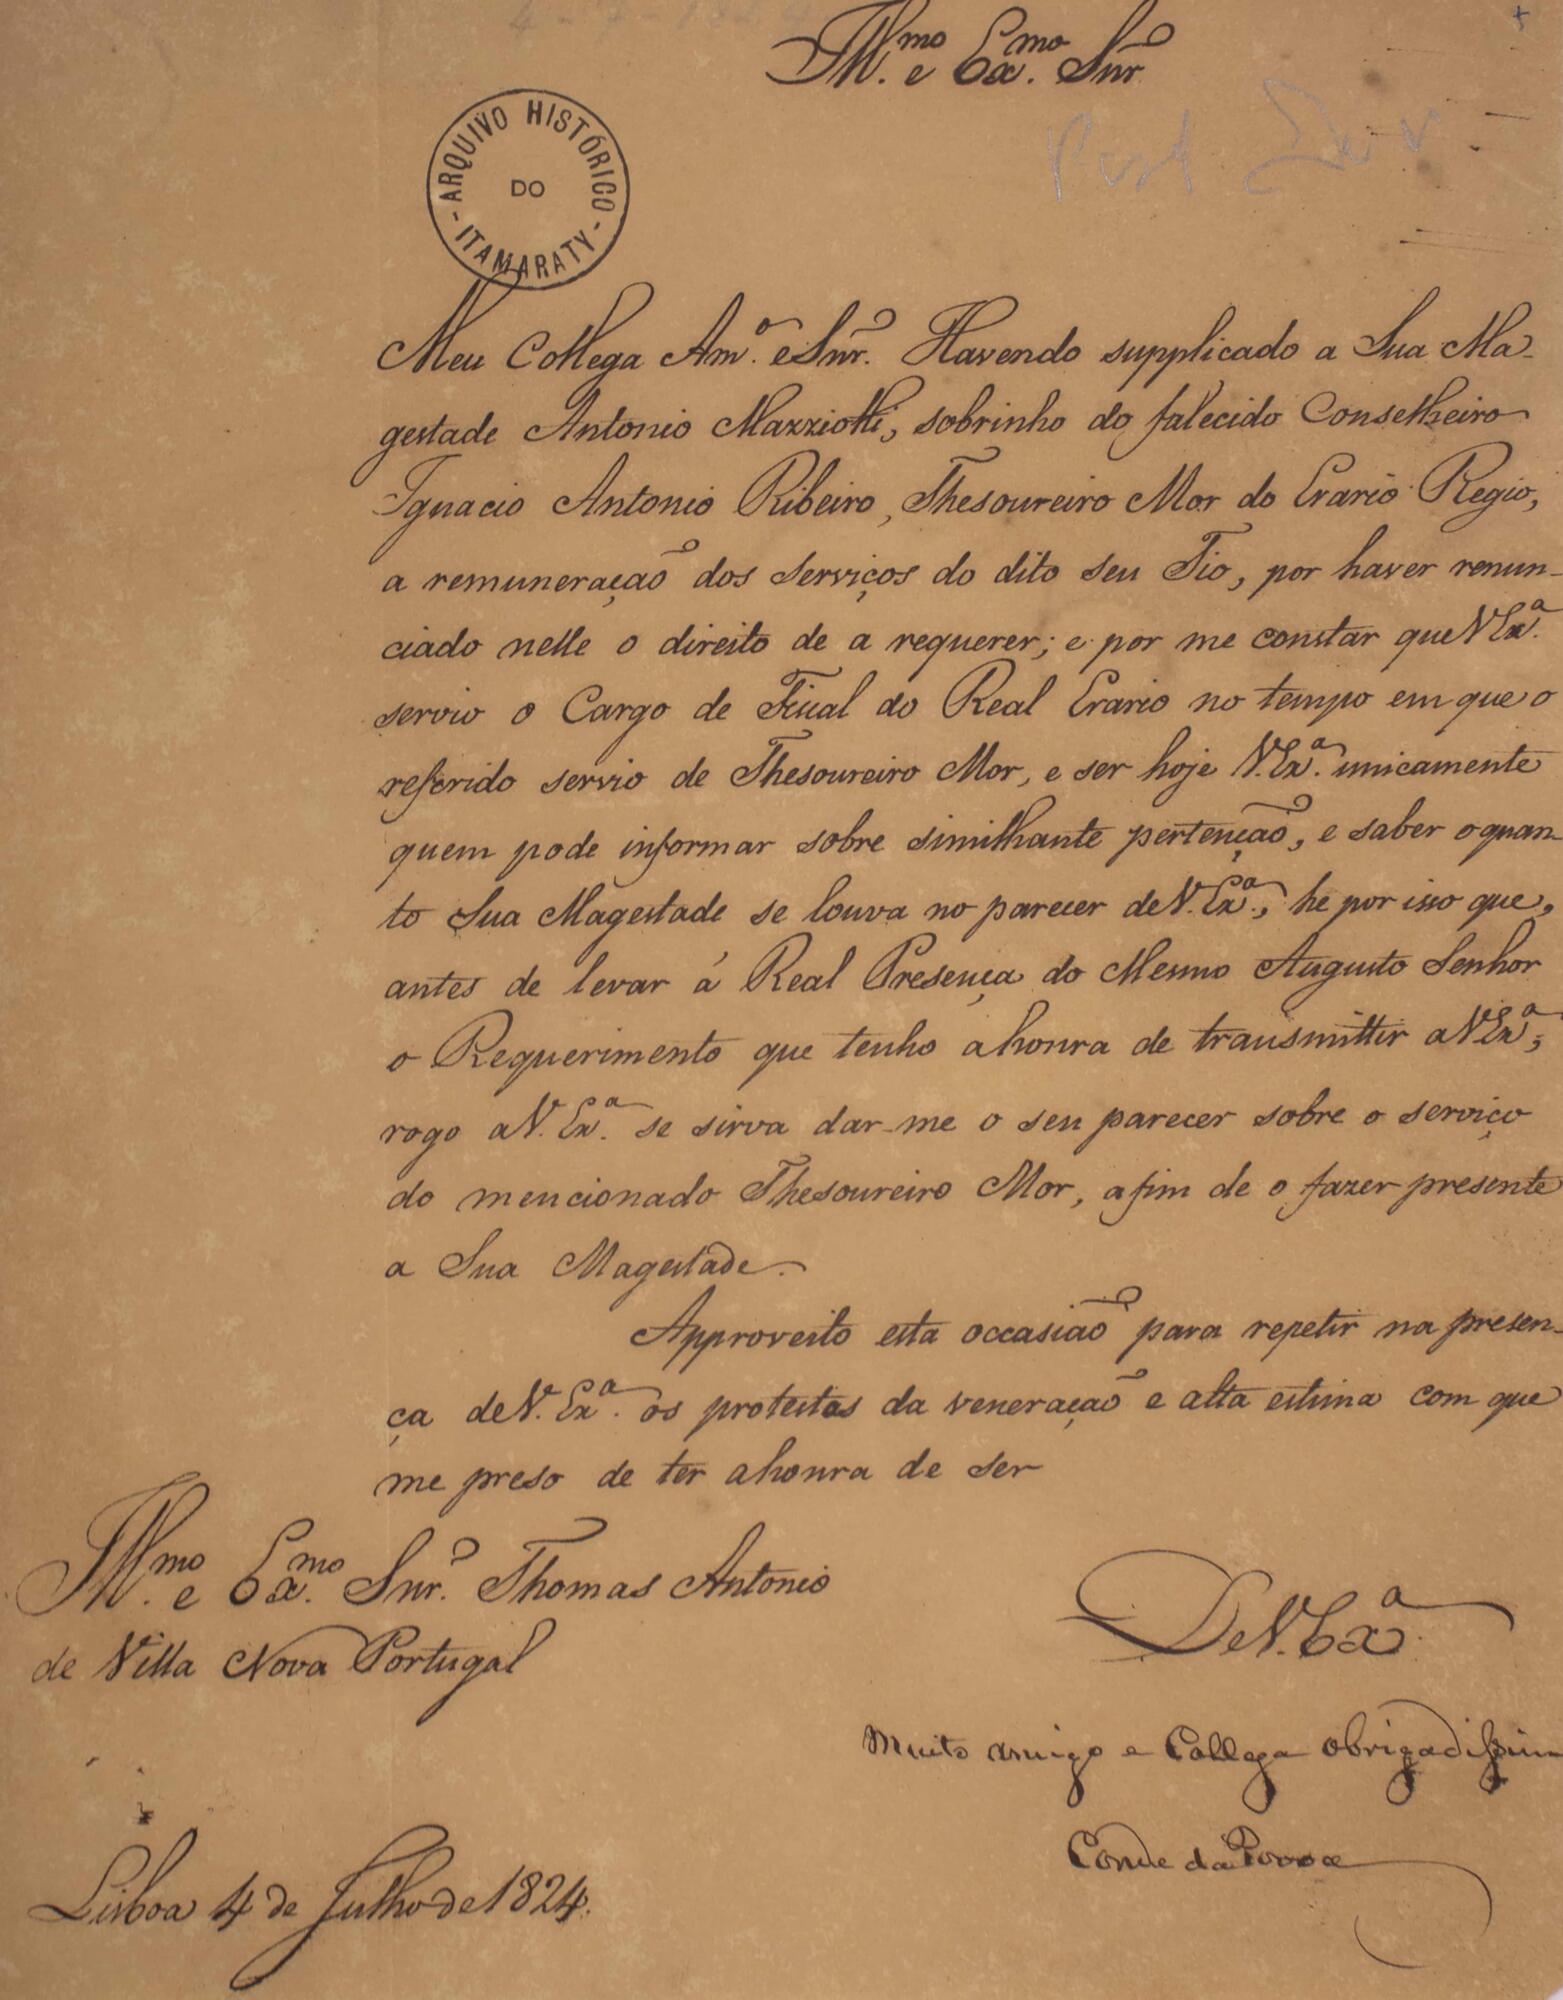 Ill.mo e Ex.mo Snr
ARQUIVO HISTÓRICO
DO
- ITAMARATY -
Meu Collega Am.o e Snr. Havendo supplicado a Sua Ma-
gestade Antonio Mazziotti, sobrinho do falecido Conselheiro
Ignacio Antonio Ribeiro, Thesoureiro Mor do Erario Regio,
a remuneração dos serviços do dito seu Tio, por haver renun-
ciado nelle o direito de a requerer; e por me constar que V Ex.a
servio o Cargo de Fiscal do Real Erario no tempo em que o
referido servio de Thesoureiro Mor, e ser hoje V. Ex.a unicamente
quem pode informar sobre similhante pertenção, e saber o quan-
to Sua Magestade se louva no parecer de V. Ex.a, he por isso que,
antes de levar á Real Presença do Mesmo Augusto Senhor
o Requerimento que tenho a honra de transmittir a V Ex.a;
rogo a V. Ex.a se sirva dar-me o seu parecer sobre o serviço
do mencionado Thesoureiro Mor, afim de o fazer presente
a Sua Magestade.
Approveito esta occasião para repetir na presen-
ça de V. Ex.a os protestos da veneração e alta estima com que
me preso de ter a honra de ser
Ill.mo e Ex.mo Snr. Thomas Antonio
de Villa Nova Portugal
De V. Ex.a
Muito amigo e Collega obrigadissim
Conde da Povoa
Lisboa 4 de Julho de 1824.